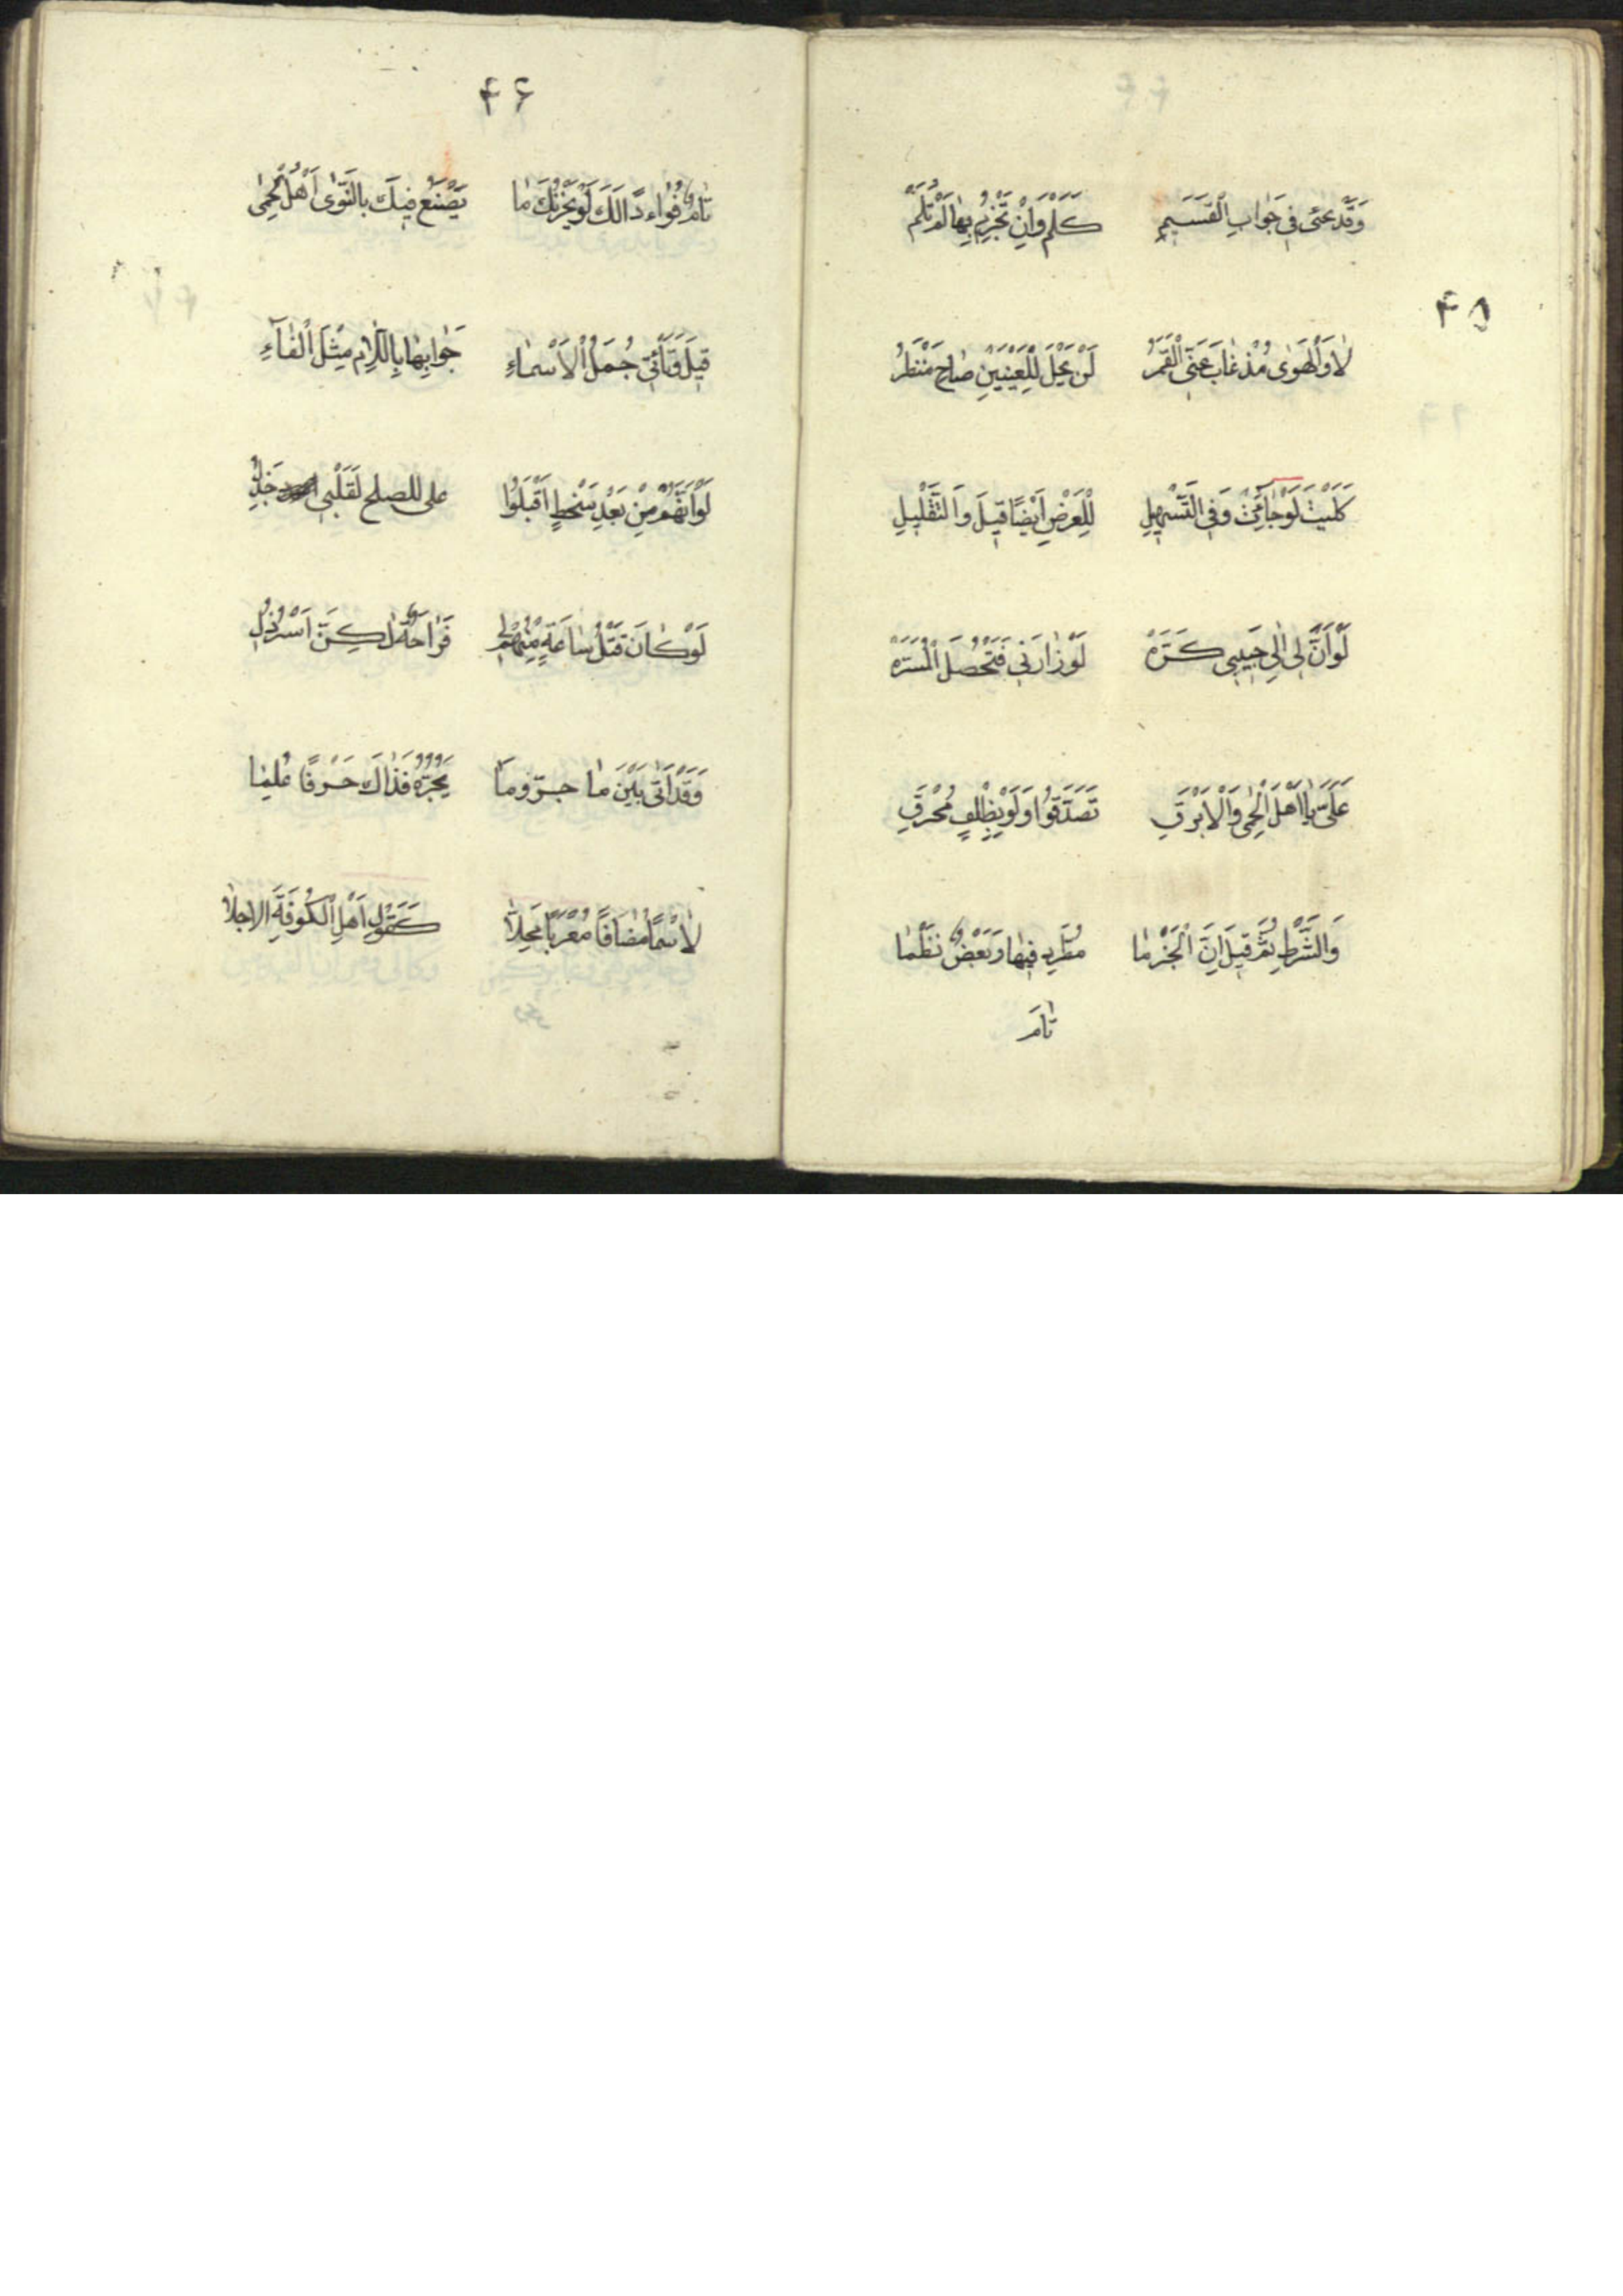 ۴۵
وَقَدْ يَجِئُ فِي جَوَابِ الْقَسَمِ كَلَمْ وَاِنْ تَجْزِمْ بِهَا لَمْ تُلَمْ
لَا وَالْهَوٰى مُذْ غَابَ عَنِّى الْقَمَرُ لَنْ يَحْلَ لِلْعَيْنَيْنِ صَاحِ مَنْظَرُ
كَلَيْتَ لَوْ جَاءَتْ وَفِي التَّسْهِيلِ لِلْعَرْضِ اَيْضًا قِيلَ وَالتَّقْلِيلِ
لَوْ اَنَّ لِى اِلٰى حَبِيبِى كَرَّهْ لَوْ زَارَنِي فَتَحْصُلَ الْمَسَرَّهْ
عَلَىَّ يَا اَهْلَ الْحِمٰى وَالْاَبْرَقِ تَصَدَّقُوا وَلَوْ بِظِلْفٍ مُحْرَقِ
وَالشَّرْطِ ثُمَّ قِيلَ اِنَّ الْجَزْمَا مُطَّرِدٌ فِيهَا وَبَعْضٌ نَظَمَا
تَامَ
۴۶
تَامَ فُؤَاءدًا لَكَ لَوْ يَحْزُنْكَ مَا يَصْنَعُ فِيكَ بِالنَّوٰى اَهْلُ الْحِمٰى
قِيلَ وَتَأْتِي جُمَلُ الْاَسْمَاءِ جَوَابِهَا بِاللَّامِ مِثْلَ الْفَآءِ
لَوْ اَنَّهُمْ مِنْ بَعْدِ سَخْطٍ اَقْبَلُوا على للصلح لَقَلْبِى جَذِلُ
لَوْ كَانَ قَتْلُ سَاعَةٍ مِنْهُمْ لِى فَرَاحَةٌ لٰكِنَّ اَسْرٌ ذُلِّ
وَقَدْ اَتٰى بَيْنَ مَا جرّ وما يَجُرُّهُ فَذَاكَ حَرْفًا عُلِمَا
لَا اسْمًا مُضَافًا مُعْرَبًا مَحِلَّا كَقَوْلِ اَهْلِ الْكُوفَةِ الاجلا